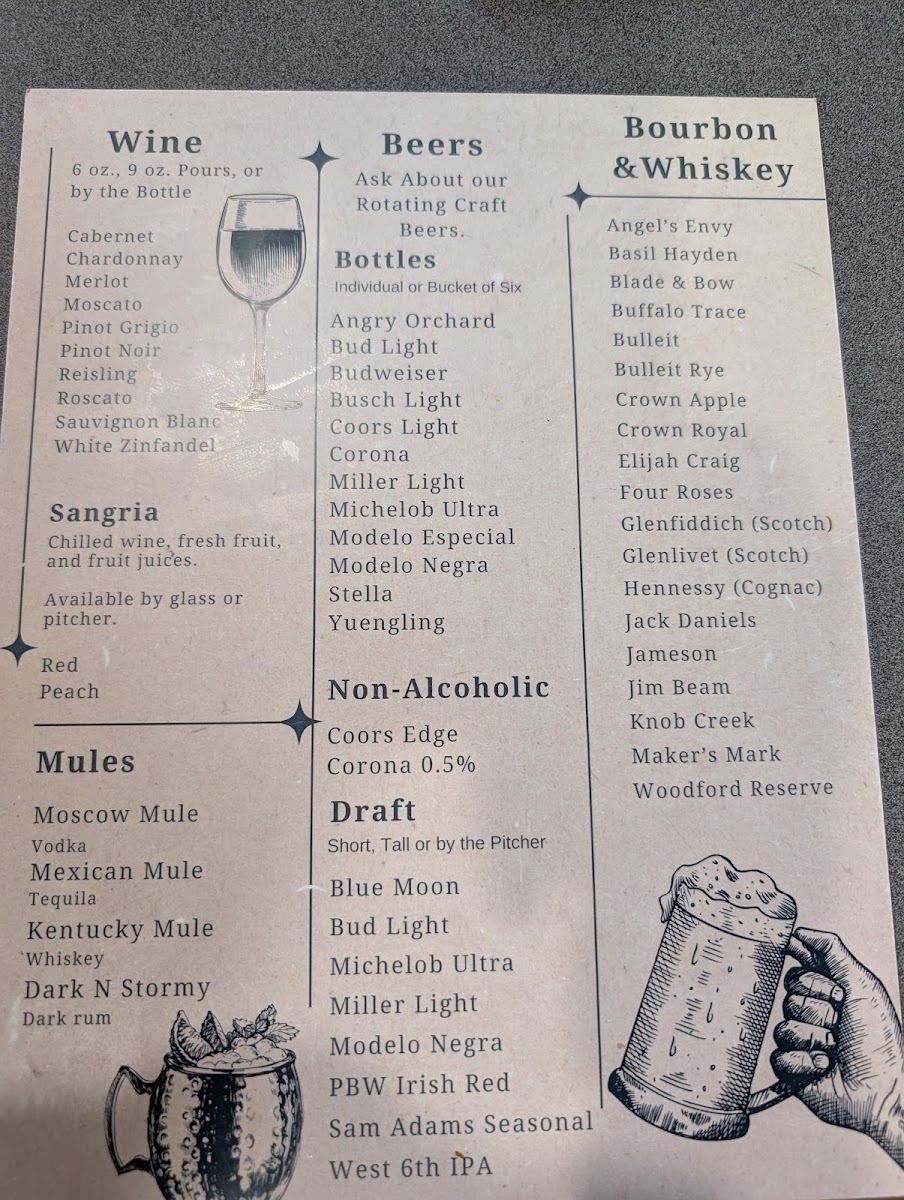 Wine
6 oz., 9 oz. Pours, or
by the Bottle
Cabernet
Chardonnay
Merlot
Moscato
Pinot Grigio
Pinot Noir
Reisling
Roscato
Sauvignon Blanc
White Zinfandel
Sangria
Chilled wine, fresh fruit,
and fruit juices.
Available by glass or
pitcher.
Red
Peach
Mules
Moscow Mule
Vodka
Mexican Mule
Tequila
Kentucky Mule
Whiskey
Dark N Stormy
Dark rum
Beers
Ask About our
Rotating Craft
Beers.
Bottles
Individual or Bucket of Six
Angry Orchard
Bud Light
Budweiser
Busch Light
Coors Light
Corona
Miller Light
Michelob Ultra
Modelo Especial
Modelo Negra
Stella
Yuengling
Non-Alcoholic
Coors Edge
Corona 0.5%
Draft
Short, Tall or by the Pitcher
Blue Moon
Bud Light
Michelob Ultra
Miller Light
Modelo Negra
PBW Irish Red
Sam Adams Seasonal
West 6th IPA
Bourbon
&Whiskey
Angel's Envy
Basil Hayden
Blade & Bow
Buffalo Trace
Bulleit
Bulleit Rye
Crown Apple
Crown Royal
Elijah Craig
Four Roses
Glenfiddich (Scotch)
Glenlivet (Scotch)
Hennessy (Cognac)
Jack Daniels
Jameson
Jim Beam
Knob Creek
Maker's Mark
Woodford Reserve